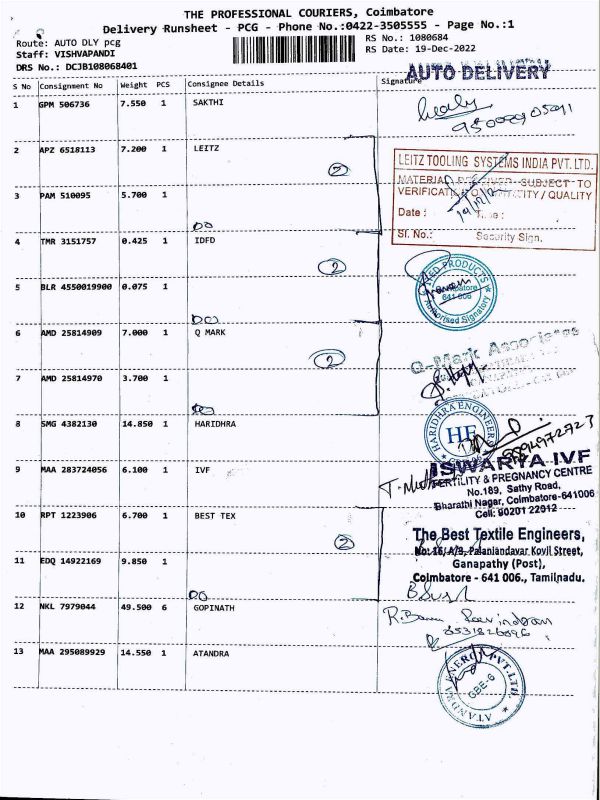 THE PROFESSIONAL COURIERS, Coimbatore
Delivery Runsheet - PCG - Phone No.:0422-3505555 - Page No.:1
Route: AUTO DLY pcg
Staff: VISHVAPANDI
DRS No.: DCJB108068401
RS No.: 1080684
RS Date: 19-Dec-2022
AUTO DELIVERY
S No Consignment No Weight PCS Consignee Details Signature
1 GPM 506736 7.550 1 SAKTHI
2 APZ 6518113 7.200 1 LEITZ
2
LEITZ TOOLING SYSTEMS INDIA PVT. LTD.
MATERIAL RECEIVED SUBJECT TO
VERIFICATION QUANTITY / QUALITY
Date : Time :
Sl. No.: Security Sign.
3 PAM 510095 5.700 1
DO
4 TMR 3151757 0.425 1 IDFD
2
PRODUCTS
Coimbatore
641 006
Authorised Signatory
5 BLR 4550019900 0.075 1
DO
6 AMD 25814909 7.000 1 Q MARK
2
Q-Mark Associates
7 AMD 25814970 3.700 1
DO
8 SMG 4382130 14.850 1 HARIDHRA
HARIDHRA ENGINEERS
HF
9 MAA 283724056 6.100 1 IVF
ISWARYA IVF
FERTILITY & PREGNANCY CENTRE
No.189, Sathy Road,
Bharathi Nagar, Coimbatore-641006
Cell: 90201 22912
10 RPT 1223906 6.700 1 BEST TEX
2
The Best Textile Engineers,
No: 16/A/9, Palaniandavar Kovil Street,
Ganapathy (Post),
Coimbatore - 641 006., Tamilnadu.
11 EDQ 14922169 9.850 1
DO
12 NKL 7979044 49.500 6 GOPINATH
13 MAA 295089929 14.550 1 ATANDRA
ATANDRA ENERGY PVT.LTD.
GBE-6